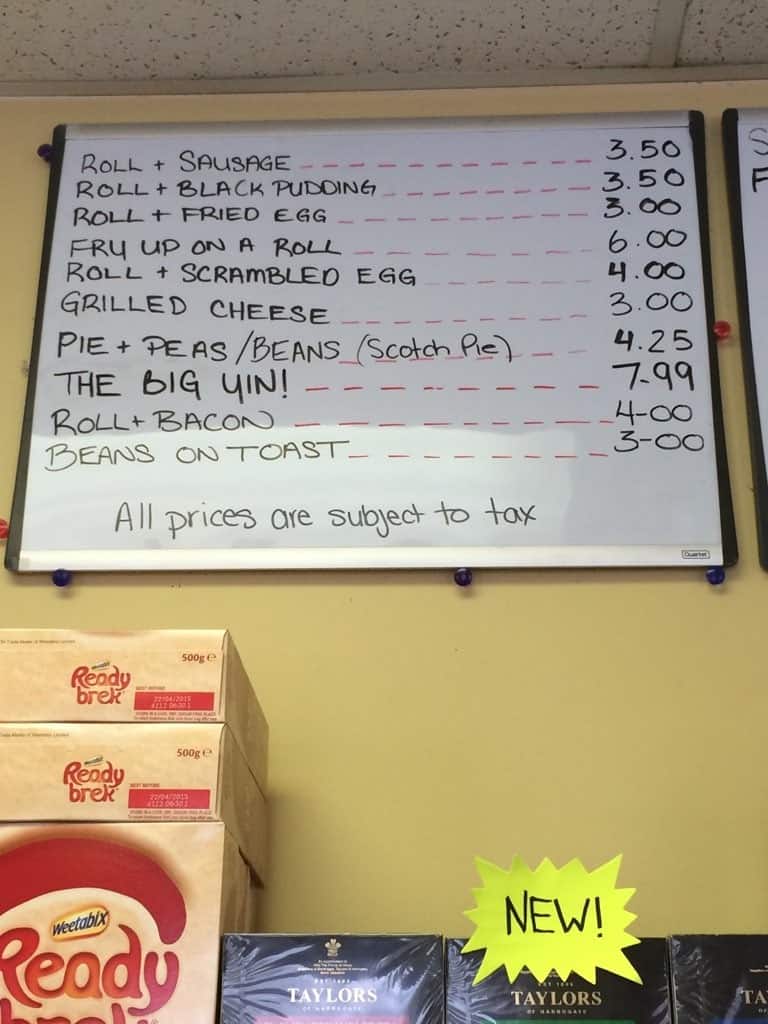 ROLL + SAUSAGE 3.50
ROLL + BLACK PUDDING 3.50
ROLL + FRIED EGG 3.00
FRY UP ON A ROLL 6.00
ROLL + SCRAMBLED EGG 4.00
GRILLED CHEESE 3.00
PIE + PEAS/BEANS (Scotch Pie) 4.25
THE BIG YIN! 7-99
ROLL + BACON 4-00
BEANS ON TOAST 3-00
All prices are subject to tax
Quartet
S
F
500g e
Ready
brek
22/04/2015
500g e
Ready
brek
22/04/2015
Weetabix
Ready
brek
NEW!
TAYLORS
OF HARROGATE
TAYLORS
OF HARROGATE
TA